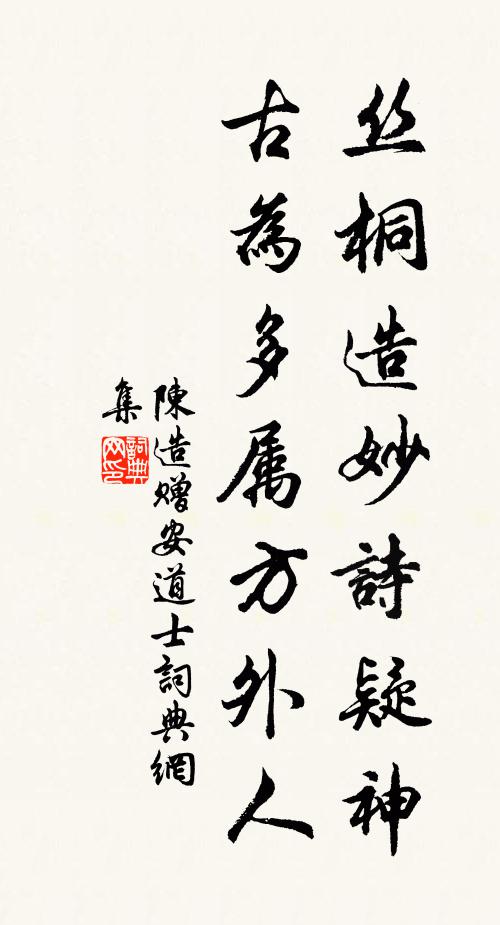 丝桐造妙詩疑神
古為多属方外人
陳造赠安道士詞典網
集
詞典
网印